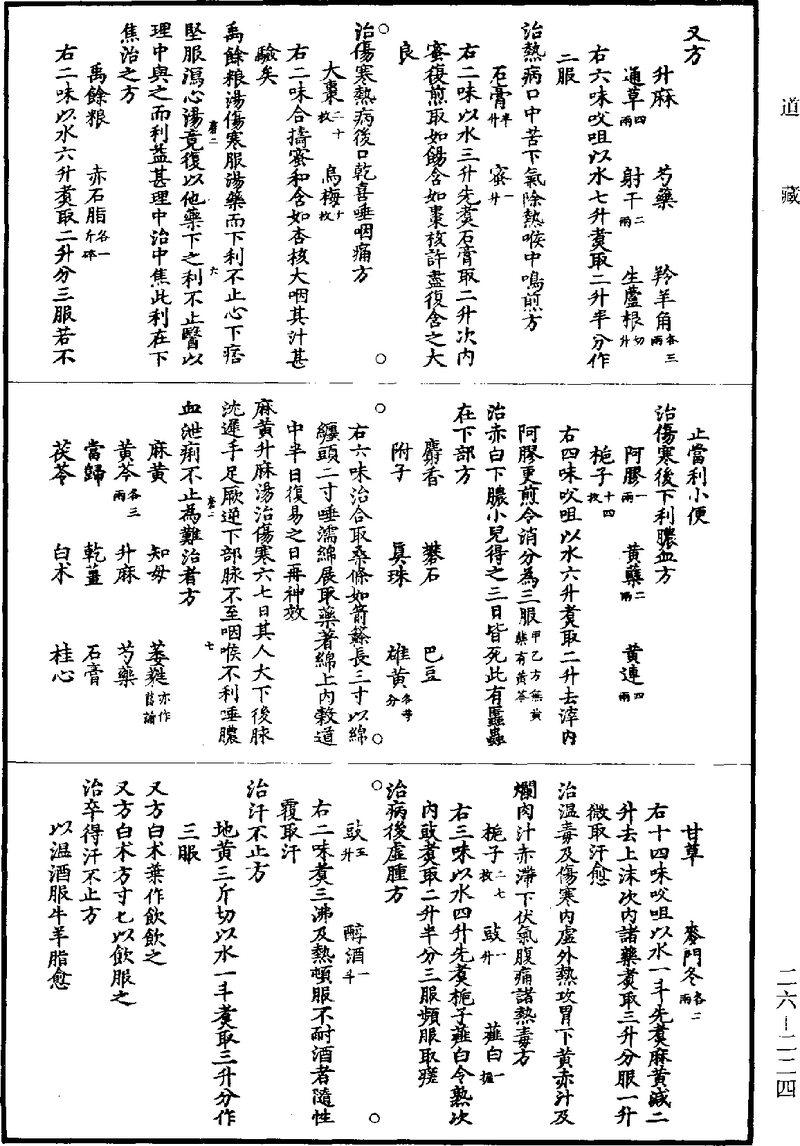 道藏
又方
升麻 芍藥 羚羊角各三兩
通草四兩 射干二兩 生蘆根切一升
右六味㕮咀以水七升煑取二升半分作
三服
治熱病口中苦下氣除熱喉中鳴煎方
石膏半升 蜜一升
右二味以水三升先煑石膏取二升次内
蜜復煎取如餳含如棗核許盡復含之大
良
治傷寒熱病後口乾喜唾咽痛方
大棗二十枚 烏梅十枚
右二味合擣蜜和含如杏核大咽其汁甚
驗矣
禹餘粮湯傷寒服湯藥而下利不止心下痞
堅服瀉心湯竟復以他藥下之利不止醫以
理中與之而利益甚理中治中焦此利在下
焦治之方
禹餘粮 赤石脂各一斤碎
右二味以水六升煑取二升分三服若不
止當利小便
治傷寒後下利膿血方
阿膠一兩 黄蘗二兩 黄連四兩
梔子十四枚
右四味㕮咀以水六升煑取二升去滓内
阿膠更煎令消分為三服甲乙方無黄蘗有黄芩
治赤白下膿小兒得之三日皆死此有䘌蟲
在下部方
麝香 礬石 巴豆
附子 真珠 雄黄各等分
右六味治合取桑條如箭簳長三寸以綿
纏頭二寸唾濡綿展取藥著綿上内穀道
中半日復易之日再神效
麻黄升麻湯治傷寒六七日其人大下後脉
沈遲手足厥逆下部脉不至咽喉不利唾膿
血泄痢不止為難治者方
麻黄 知母 萎蕤亦作菖蒲
黄芩各三兩 升麻 芍藥
當歸 乾薑 石膏
茯苓 白术 桂心
甘草 麥門冬各二兩
右十四味㕮咀以水一斗先煑麻黄減二
升去上沫次内諸藥煑取三升分服一升
微取汗愈
治温毒及傷寒内虚外熱攻胃下黄赤汁及
爛肉汁赤滯下伏氣腹痛諸熱毒方
梔子二七枚 豉一升 薤白一握
右三味以水四升先煑梔子薤白令熟次
内豉煑取二升半分三服頻服取瘥
治病後虚腫方
豉五升 醇酒一斗
右二味煑三沸及熱頓服不耐酒者隨性
覆取汗
治汗不止方
地黄三斤切以水一斗煑取三升分作
三服
又方白术葉作飲飲之
又方白术方寸匕以飲服之
治卒得汗不止方
以温酒服牛羊脂愈
二六-二二四